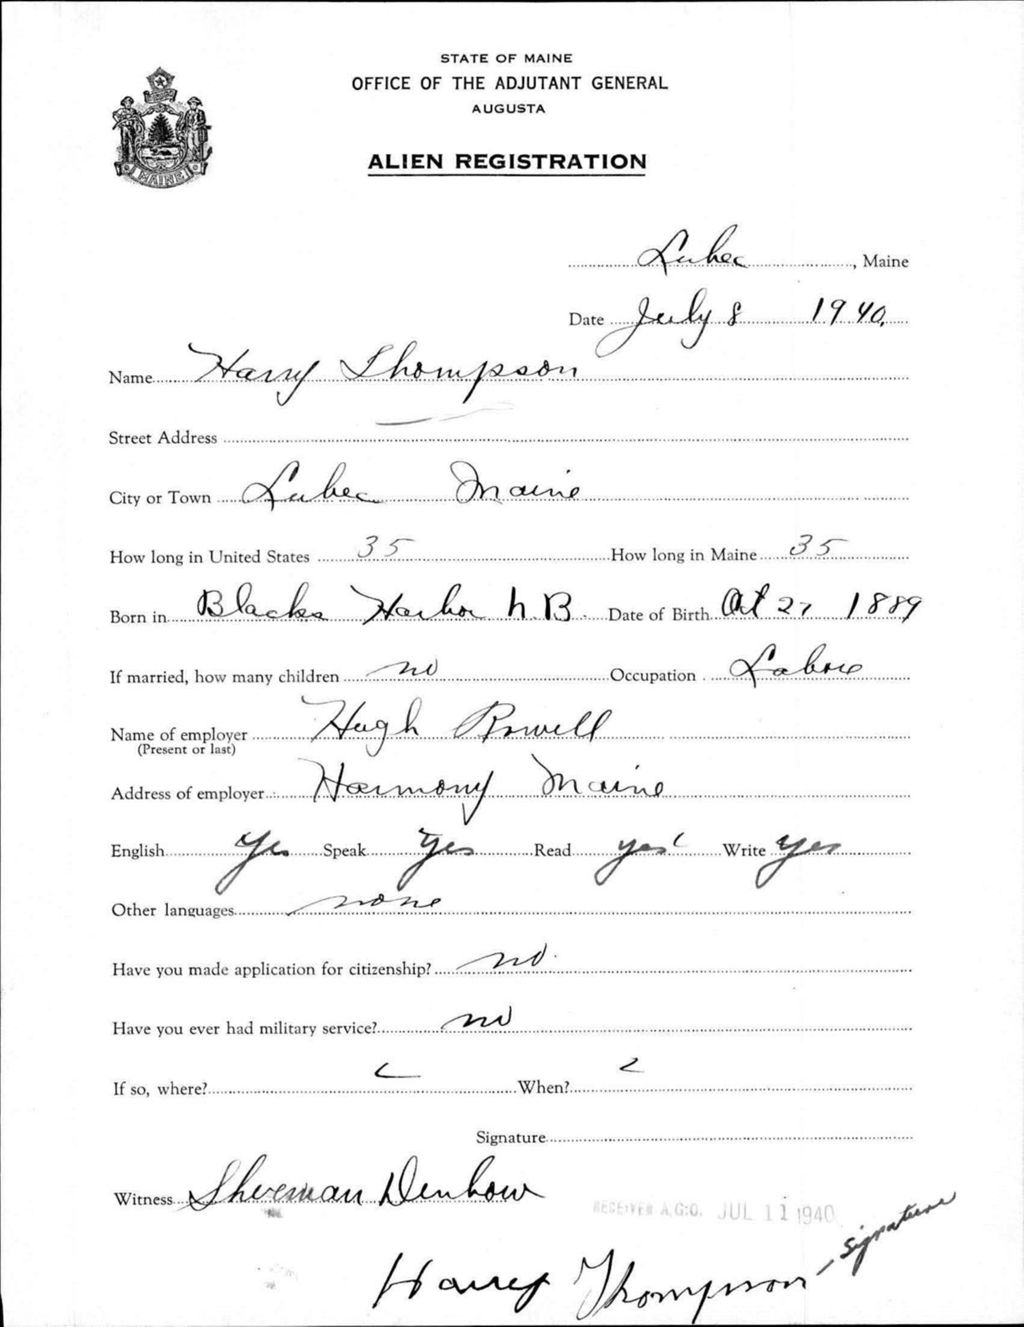 STATE OF MAINE
OFFICE OF THE ADJUTANT GENERAL
AUGUSTA
ALIEN REGISTRATION
MAINE
Lubec, Maine
Date July 8 1940
Name Harry Thompson
Street Address
City or Town Lubec Maine
How long in United States 35 How long in Maine 35
Born in Blacks Harbor N.B. Date of Birth Oct 27 1889
If married, how many children no Occupation Labore
Name of employer Hugh Rowell
(Present or last)
Address of employer Harmony Maine
English yes Speak yes Read yes Write yes
Other languages none
Have you made application for citizenship? no
Have you ever had military service? no
If so, where? When?
Signature
Witness Sherman Denbow
RECEIVED A.G.O. JUL 11 1940
Harry Thompson - Signature